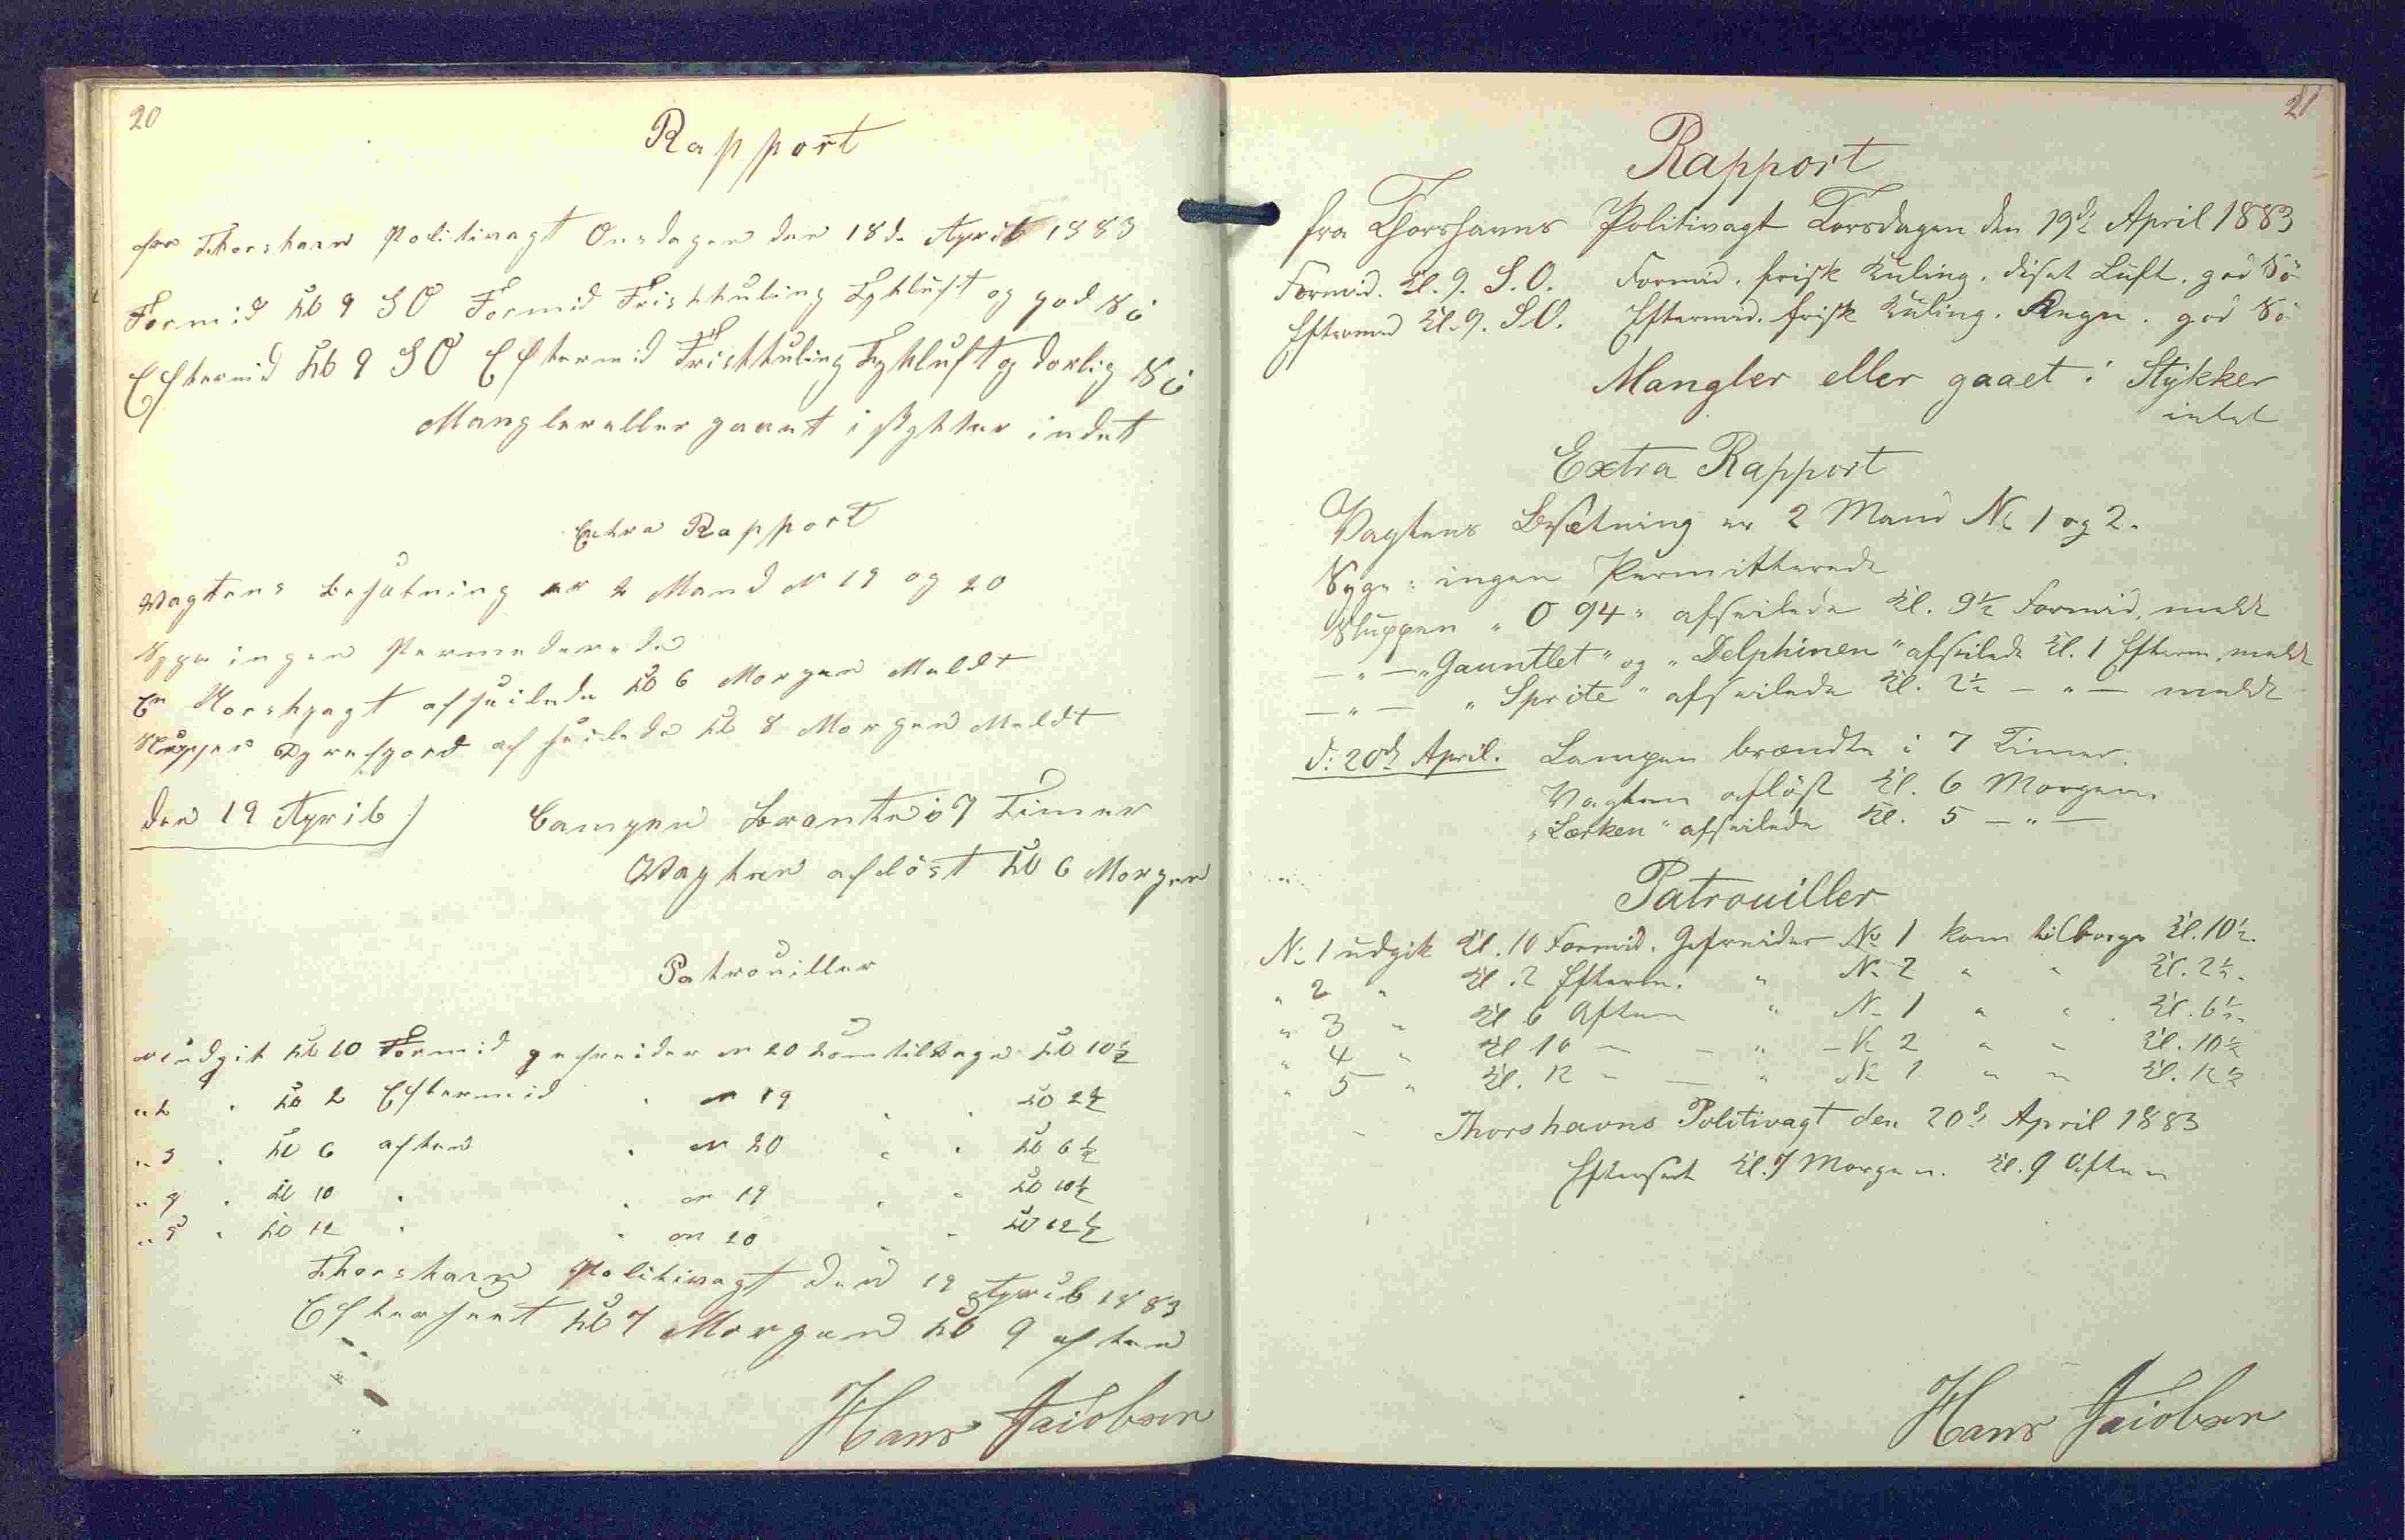 20
Rapport
for Thorshavn Politivagt Onsdagen den 18de April 1883
Formid Kl 9 SO Formid Friskkuling Tykluft og god Sö
Eftermid Kl 9 SO Eftermid Friskkuling Tykluft og dorlig Sö
Mangler eller gaaet i stykker indet
Extra Rapport
Vagtens besætning er 2 Mand N 19 og 20
Syge ingen Permederede
En Norskjagt afseilede Kl 6 Morgen Meldt
Sluppen Dyrefjord afseilede Kl 8 Morgen Meldt
den 19 April
Lampen brante i 7 Timer
Vagten aflöst Kl 6 Morgen
Patrouiller
N 1 udgik Kl 10 Formid gefreider N 20 kom tilbage Kl 10½
" 2 " Kl 2 Eftermid " N 19 " " Kl 2½
" 3 " Kl 6 aften " N 20 " " Kl 6½
" 4 " Kl 10 " " N 19 " " Kl 10½
" 5 " Kl 12 " " N 20 " " Kl 12½
Thorshavn Politivagt den 19 April 1883
Efterseet Kl 7 Morgen Kl 9 aften
Hans Jacobsen
21
Rapport
fra Thorshavns Politivagt Torsdagen den 19de April 1883
Formid. Kl. 9. S.O. Formid. frisk Kuling. diset Luft. god Sö
Eftermid Kl. 9. SO. Eftermid. frisk Kuling. Regn. god Sö
Mangler eller gaaet i Stykker
intet
Extra Rapport
Vagtens Besætning er 2 Mand No 1 og 2.
Syge: ingen Permitterede
Sluppen "O 94" afseilede Kl. 9½ Formid, meldt
— " — "Gauntlet" og "Delphinen" afseilede Kl. 1 Efterm. meldt
— " — "Sprite" afseilede Kl. 2½ — " — meldt
d: 20de April. Lampen brændte i 7 Timer.
Vagten aflöst Kl. 6 Morgen.
"Lærken" afseilede Kl. 5 — " —
Patrouiller
No 1 udgik Kl. 10 Formid. Gefreider No 1 kom tilbage Kl. 10½.
" 2 " Kl. 2 Efterm. " No 2 " " Kl. 2½.
" 3 " Kl 6 Aften " No 1 " " Kl. 6½.
" 4 " Kl 10 — — " — No 2 " " Kl. 10½
" 5 " Kl. 12 — — " No 1 " " Kl. 12½
Thorshavns Politivagt den 20de April 1883
Efterseet Kl. 7 Morgen. Kl. 9 Aften
Hans Jacobsen